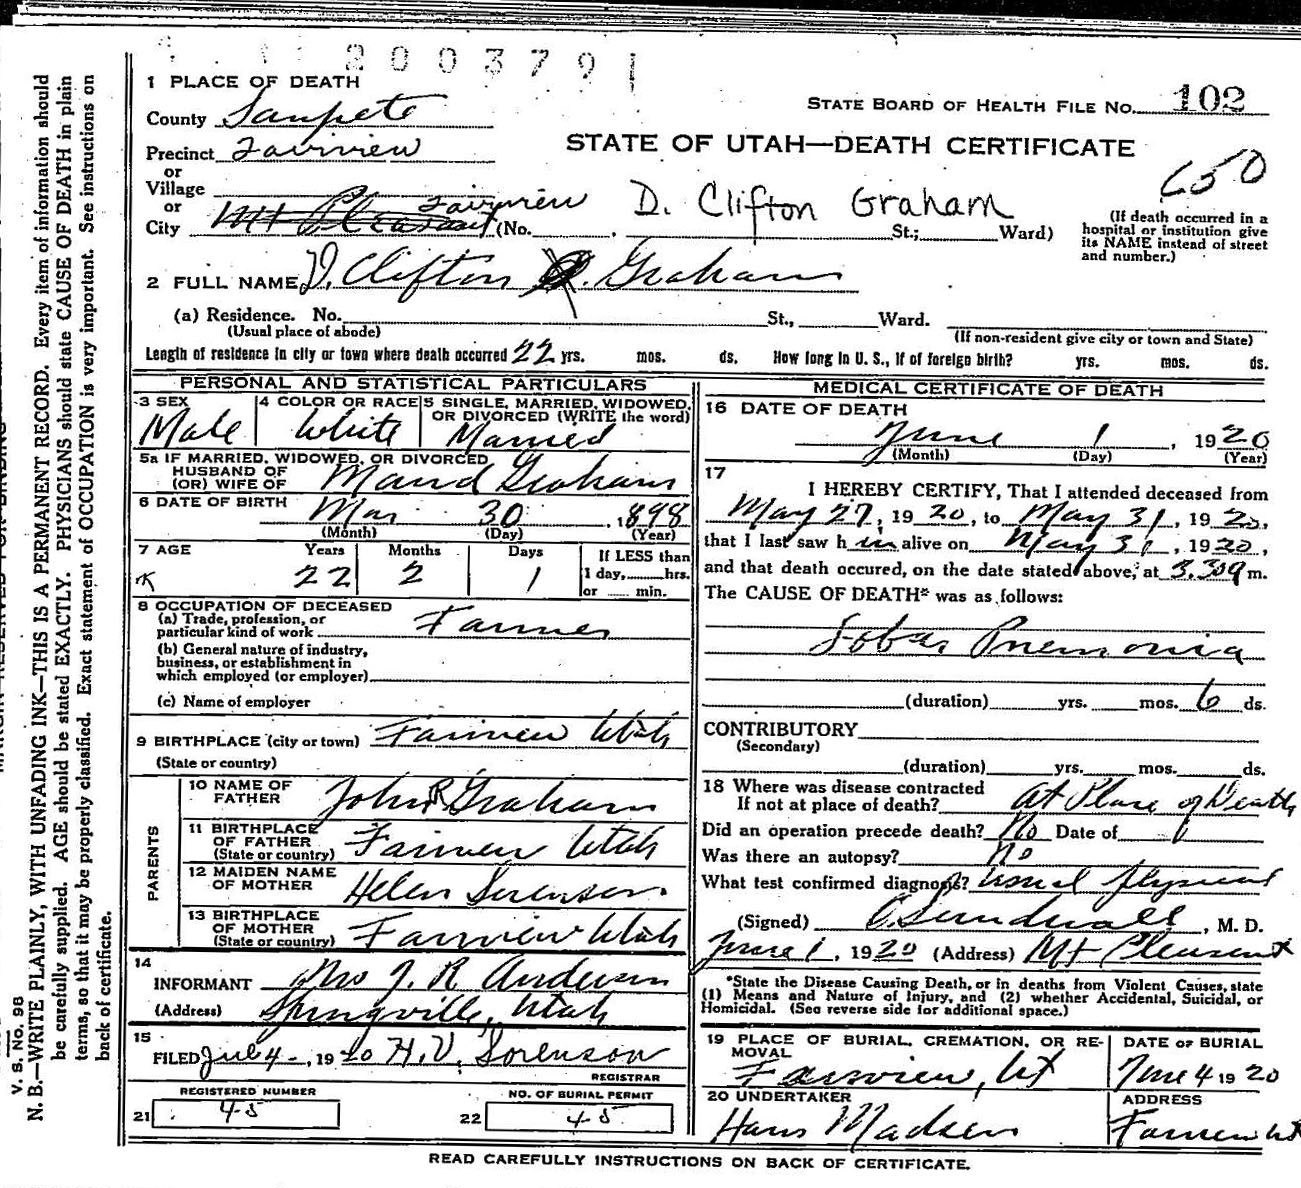 2003791
1 PLACE OF DEATH
STATE BOARD OF HEALTH FILE NO. 102
County Sanpete
STATE OF UTAH—DEATH CERTIFICATE
Precinct Fairview
650
or
Village
or
City Mt Pleasant Fairview (No. , St.; Ward)
D. Clifton Graham
(If death occurred in a hospital or institution give its NAME instead of street and number.)
2 FULL NAME D. Clifton Graham
(a) Residence. No. St., Ward.
(Usual place of abode) (If non-resident give city or town and State)
Length of residence in city or town where death occurred 22 yrs. mos. ds. How long in U. S., if of foreign birth? yrs. mos. ds.
PERSONAL AND STATISTICAL PARTICULARS
3 SEX Male
4 COLOR OR RACE White
5 SINGLE, MARRIED, WIDOWED, OR DIVORCED (WRITE the word) Married
5a IF MARRIED, WIDOWED, OR DIVORCED
HUSBAND OF
(OR) WIFE OF Maud Graham
6 DATE OF BIRTH Mar 30, 1898
(Month) (Day) (Year)
7 AGE Years Months Days If LESS than
22 2 1 1 day, hrs.
or min.
8 OCCUPATION OF DECEASED
(a) Trade, profession, or
particular kind of work Farmer
(b) General nature of industry,
business, or establishment in
which employed (or employer)
(c) Name of employer
9 BIRTHPLACE (city or town) Fairview Utah
(State or country)
PARENTS
10 NAME OF
FATHER John R Graham
11 BIRTHPLACE
OF FATHER
(State or country) Fairview Utah
12 MAIDEN NAME
OF MOTHER Helen Sorenson.
13 BIRTHPLACE
OF MOTHER
(State or country) Fairview Utah
14
INFORMANT Mrs J. R Anderson
(Address) Springville, Utah
15
FILED June 4-, 1920 H. V. Sorenson
REGISTRAR
REGISTERED NUMBER
21 45
NO. OF BURIAL PERMIT
22 45
MEDICAL CERTIFICATE OF DEATH
16 DATE OF DEATH
June 1, 1920
(Month) (Day) (Year)
17
I HEREBY CERTIFY, That I attended deceased from
May 27, 1920, to May 31, 1920,
that I last saw him alive on May 31, 1920,
and that death occured, on the date stated above, at 3.30 a m.
The CAUSE OF DEATH* was as follows:
Lobar Pnemonia
(duration) yrs. mos. 6 ds.
CONTRIBUTORY
(Secondary)
(duration) yrs. mos. ds.
18 Where was disease contracted
If not at place of death? At Place of Death
Did an operation precede death? No Date of
Was there an autopsy? no
What test confirmed diagnosis? usual physical
(Signed) Sundwall, M. D.
June 1, 1920 (Address) Mt Pleasant
*State the Disease Causing Death, or in deaths from Violent Causes, state
(1) Means and Nature of Injury, and (2) whether Accidental, Suicidal, or
Homicidal. (See reverse side for additional space.)
19 PLACE OF BURIAL, CREMATION, OR RE-
MOVAL
Fairview, Ut
DATE OF BURIAL
June 4 1920
20 UNDERTAKER
Hans Madsen
ADDRESS
Fairview Ut
READ CAREFULLY INSTRUCTIONS ON BACK OF CERTIFICATE.
V. S. No. 98
N. B.—WRITE PLAINLY, WITH UNFADING INK—THIS IS A PERMANENT RECORD. Every item of information should
be carefully supplied. AGE should be stated EXACTLY. PHYSICIANS should state CAUSE OF DEATH in plain
terms, so that it may be properly classified. Exact statement of OCCUPATION is very important. See instructions on
back of certificate.